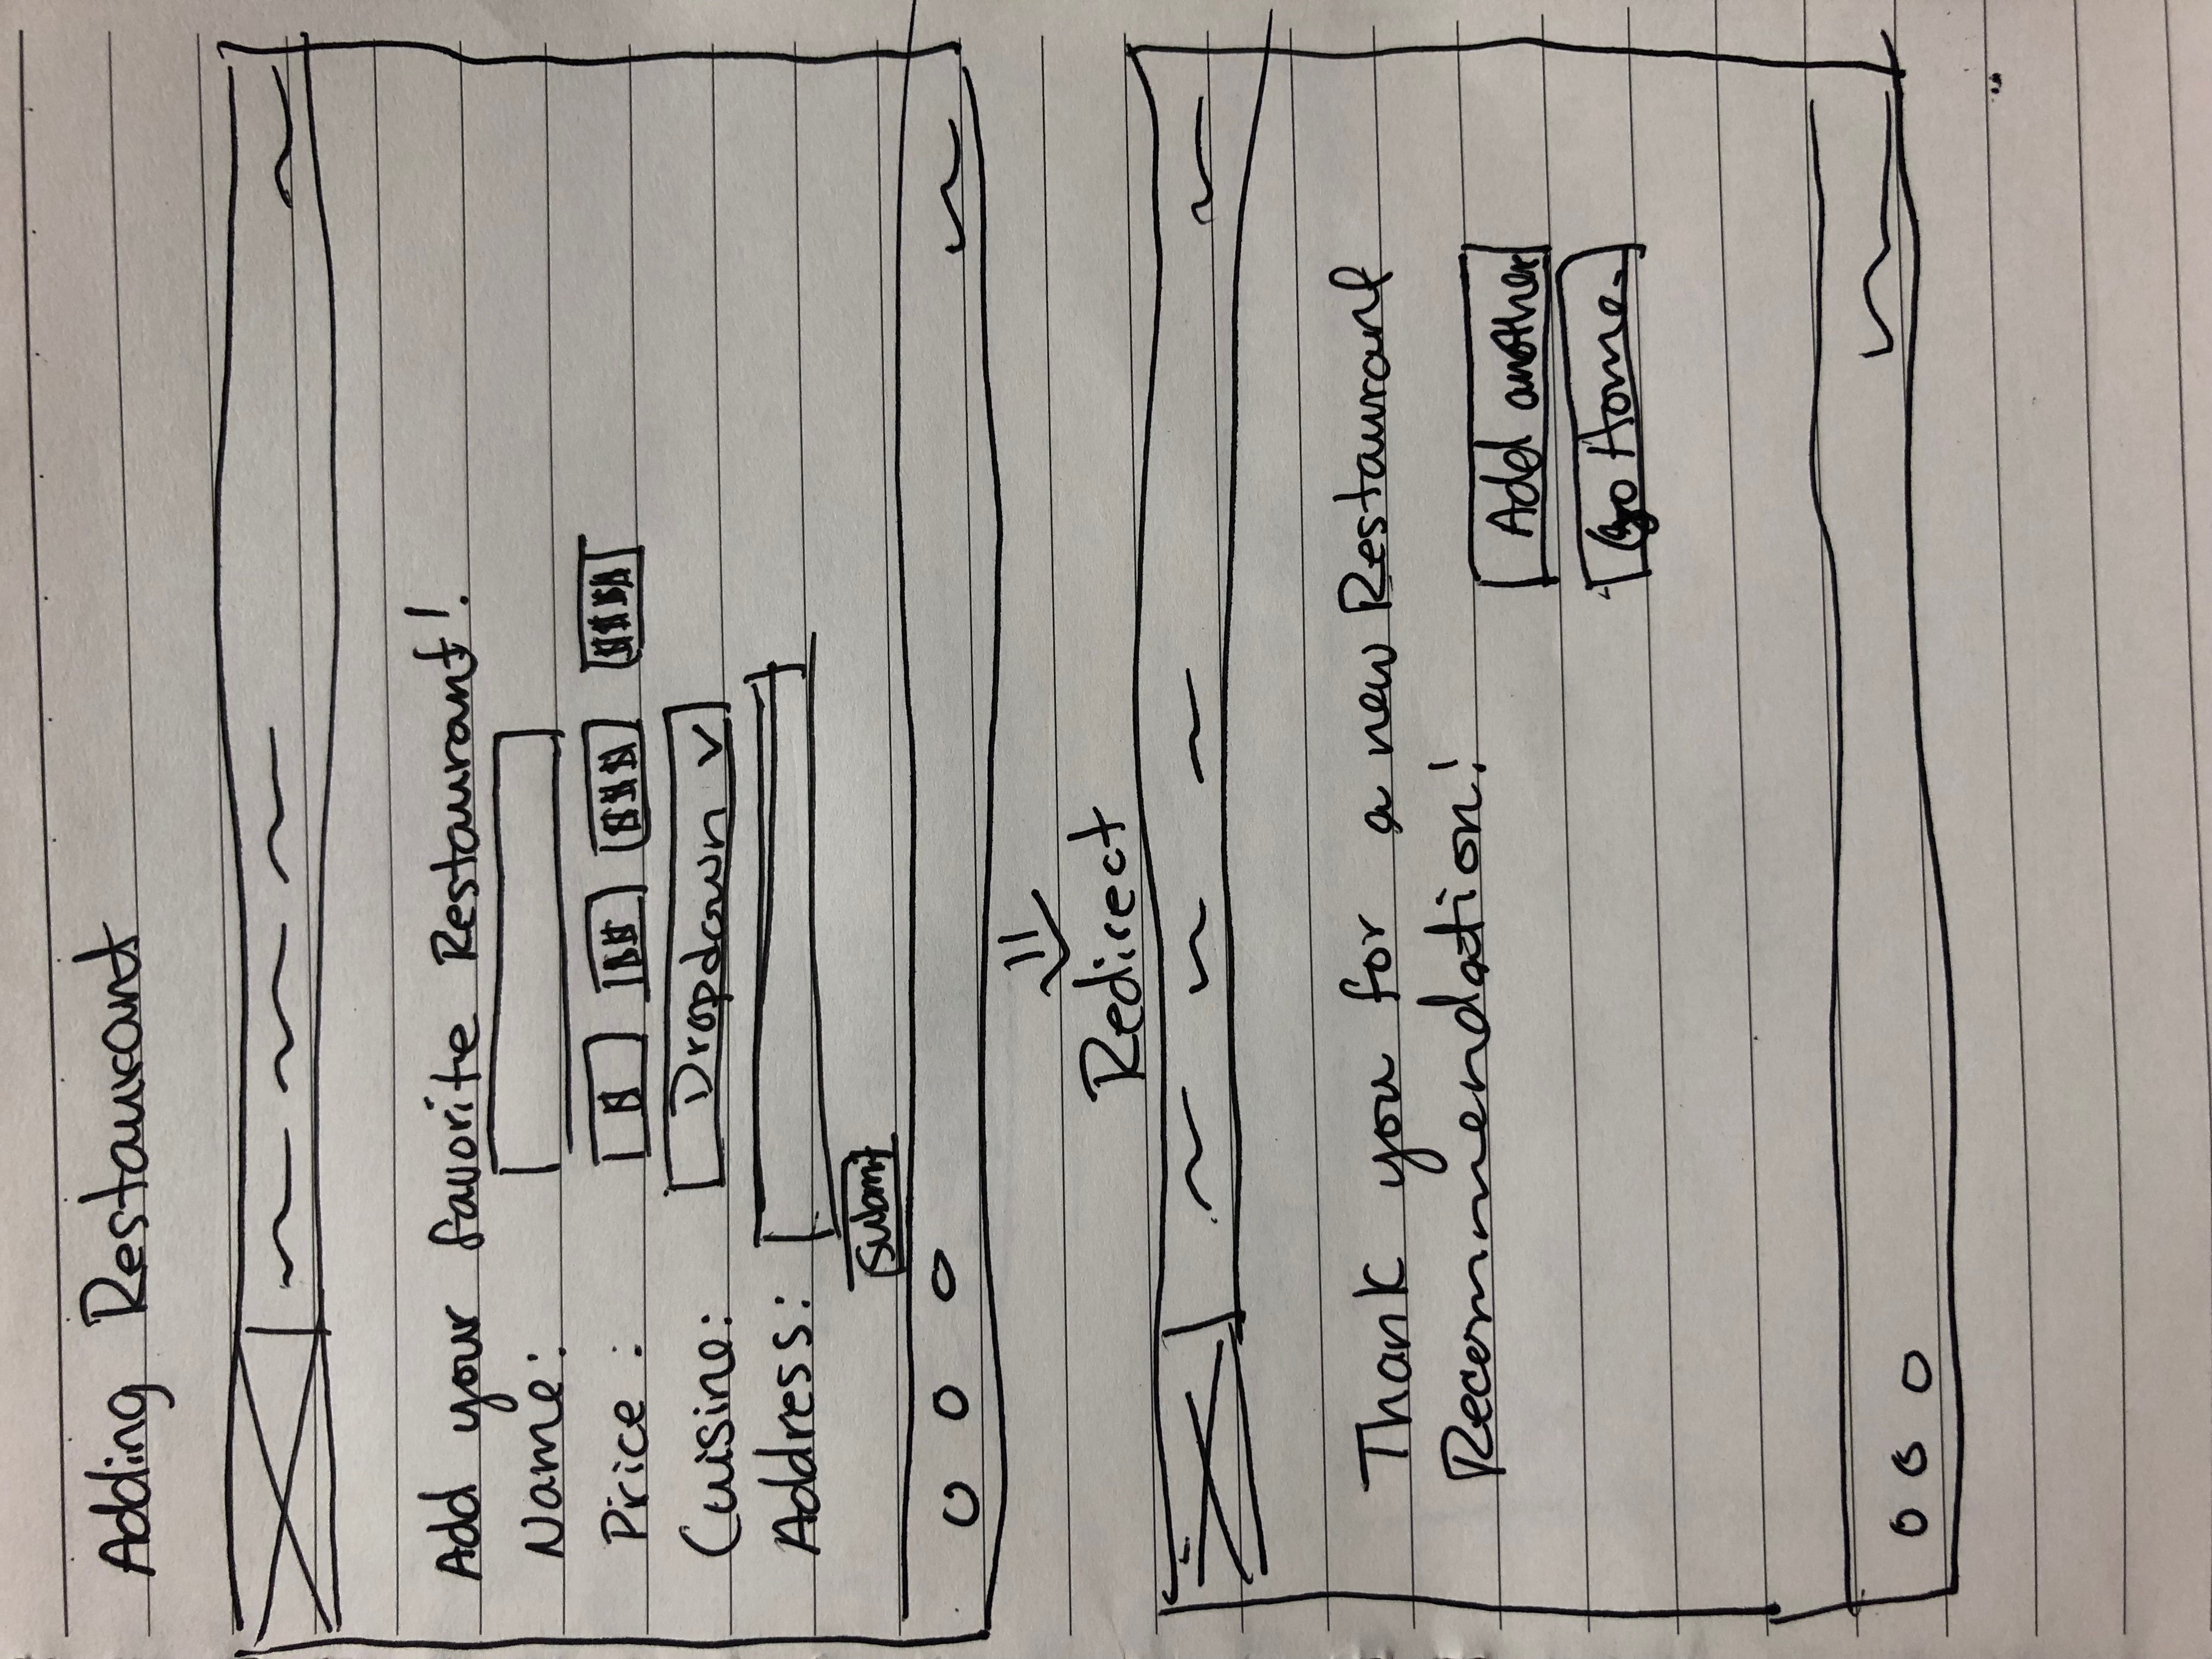 Adding Restaurant
Add your favorite Restaurant!
Name:
Price: $ $$ $$$ $$$$
Cuisine: Dropdown
Address:
Submit
Redirect
Thank you for a new Restaurant
Recommendation!
Add another
Go Home